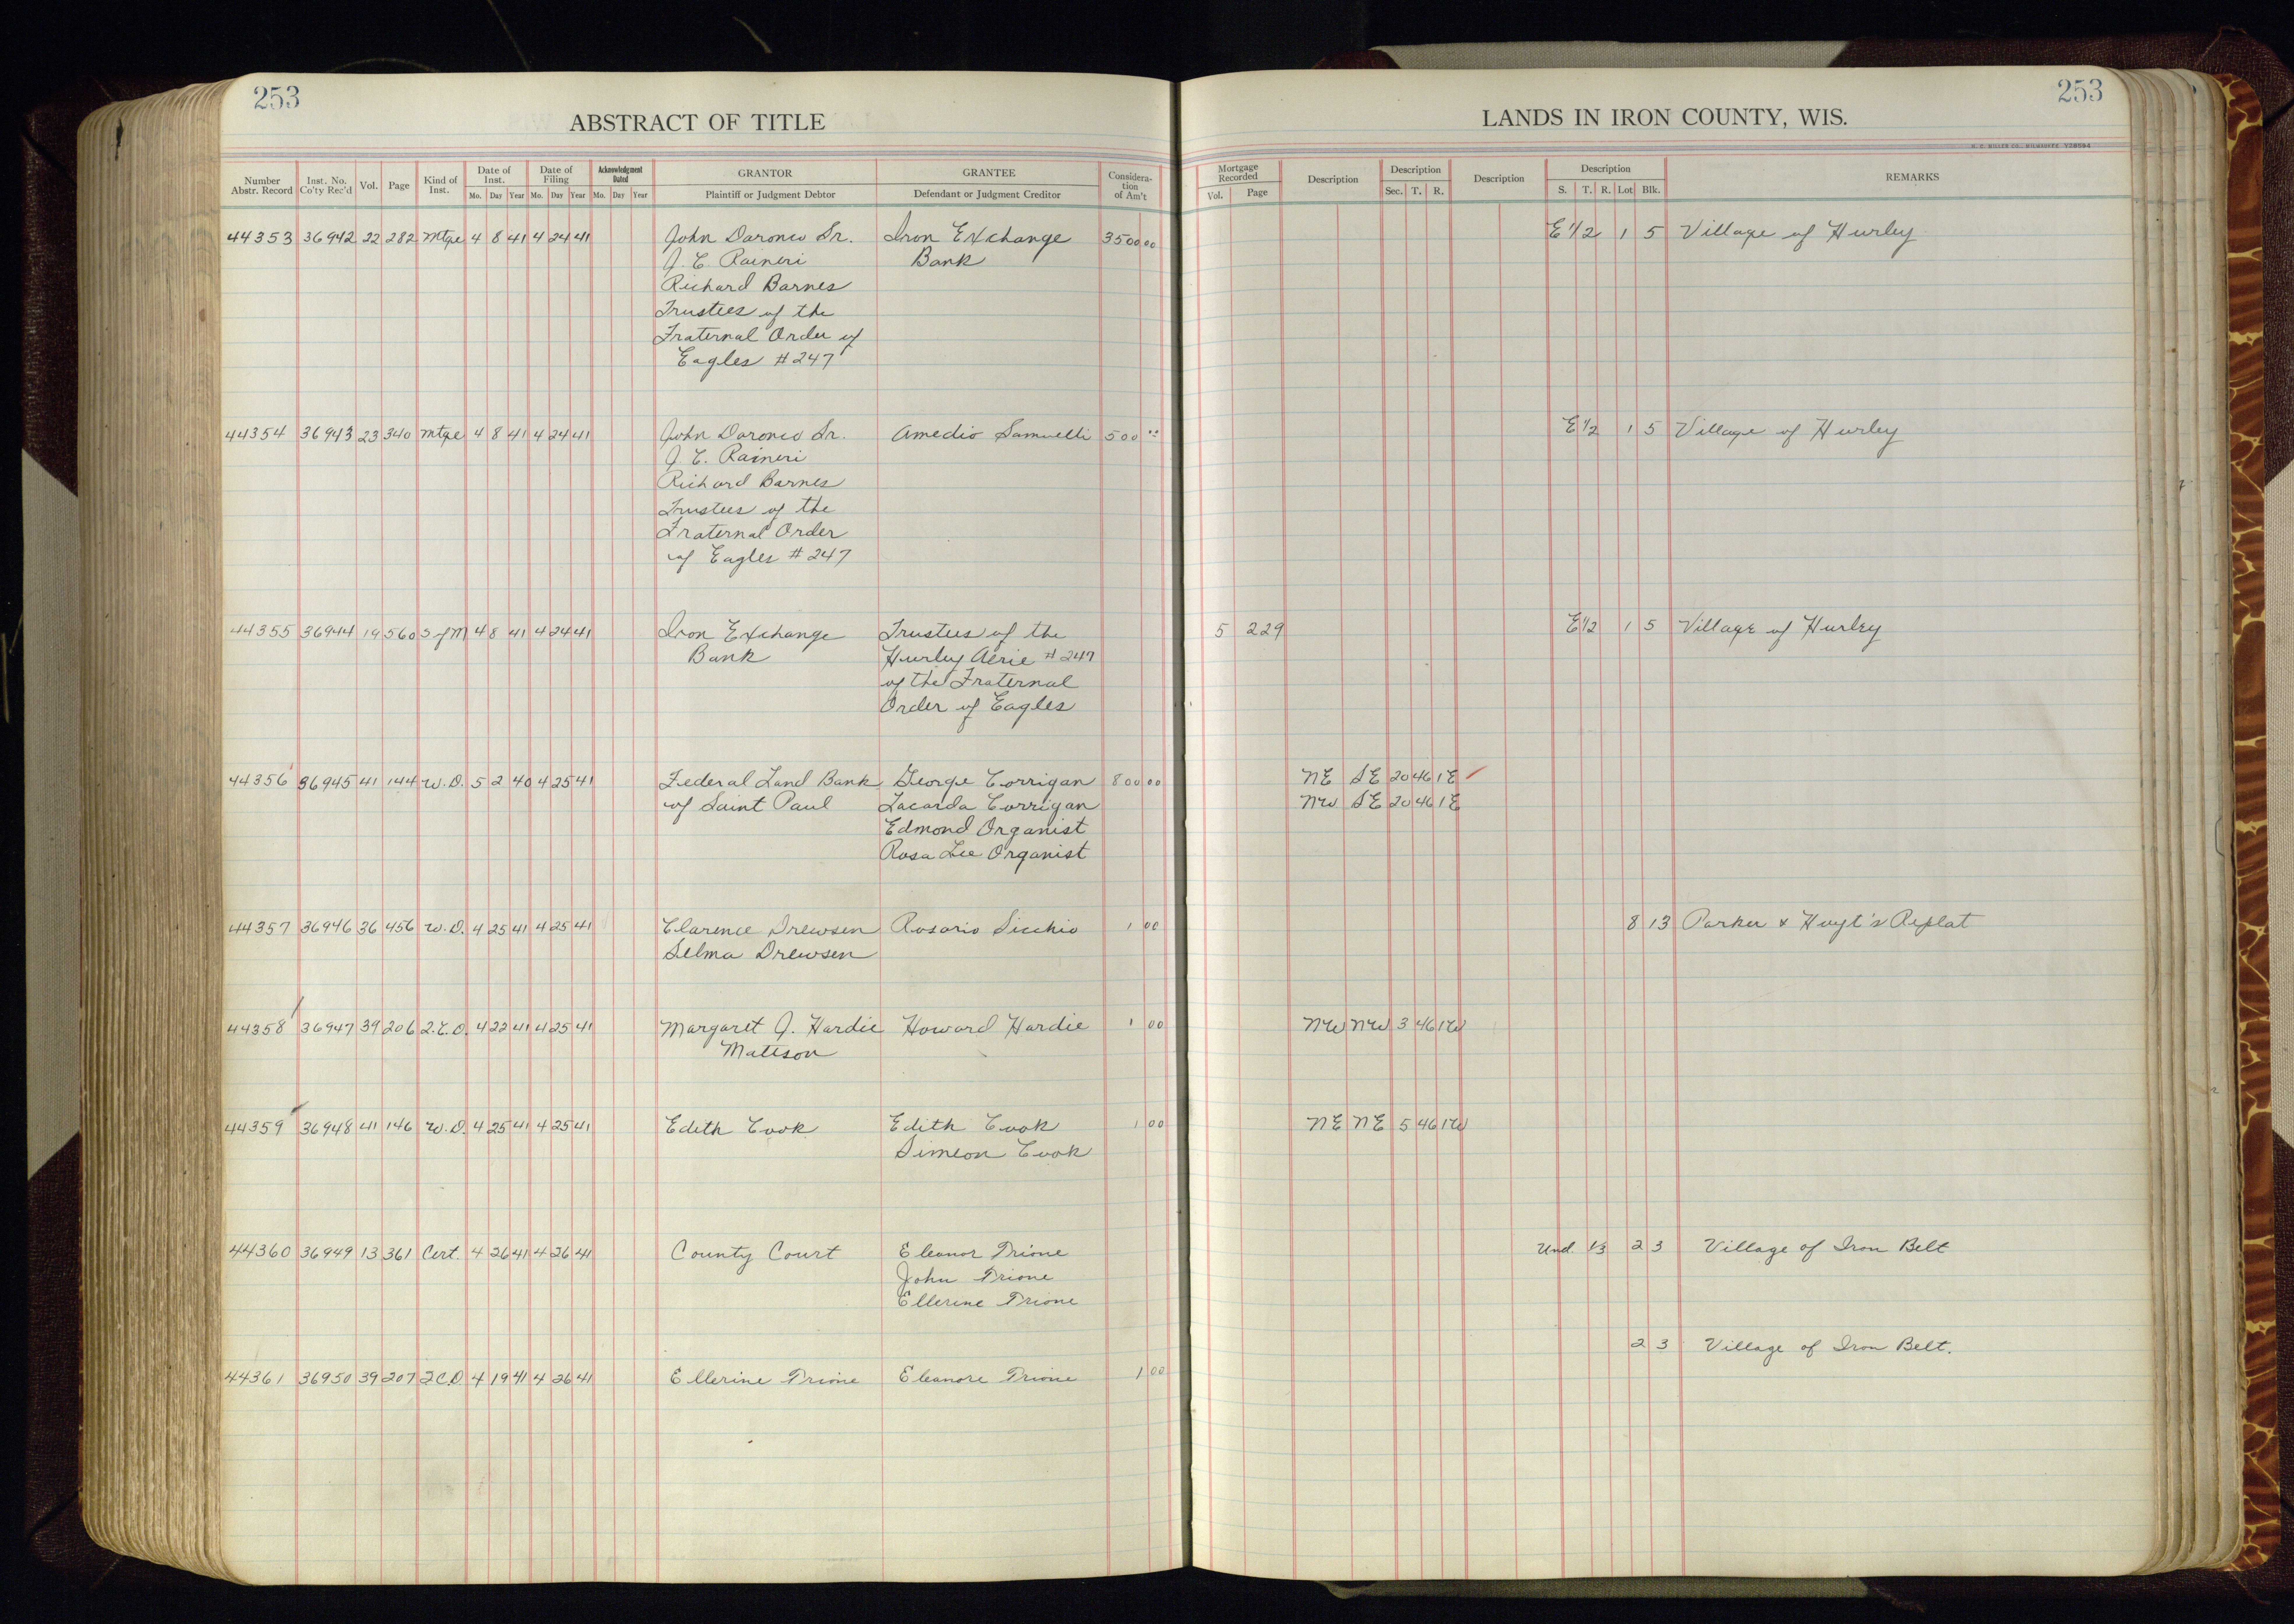 253
ABSTRACT OF TITLE
Number Abstr. Record | Inst. No. Co'ty Rec'd | Vol. | Page | Kind of Inst. | Date of Inst. Mo. Day Year | Date of Filing Mo. Day Year | Acknowledgment Dated Mo. Day Year | GRANTOR Plaintiff or Judgment Debtor | GRANTEE Defendant or Judgment Creditor | Considera-tion of Am't
44353 36942 22 282 Mtge 4 8 41 4 24 41 John Daronco Sr. Iron Exchange 3500 00
J. C. Raineri Bank
Richard Barnes
Trustees of the
Fraternal Order of
Eagles #247
44354 36943 23 340 Mtge 4 8 41 4 24 41 John Daronco Sr. Amedio Samuelli 500 00
J. C. Raineri
Richard Barnes
Trustees of the
Fraternal Order
of Eagles #247
44355 36944 19 560 S of M 4 8 41 4 24 41 Iron Exchange Trustees of the
Bank Hurley Aerie #247
of the Fraternal
Order of Eagles
44356 36945 41 144 W.D. 5 2 40 4 25 41 Federal Land Bank George Corrigan 800 00
of Saint Paul Lacarda Corrigan
Edmond Organist
Rosa Lee Organist
44357 36946 36 456 W.D. 4 25 41 4 25 41 Clarence Drewsen Rosario Sicchio 1 00
Selma Drewsen
44358 36947 39 206 Q.C.D. 4 22 41 4 25 41 Margaret J. Hardie Howard Hardie 1 00
Mattson
44359 36948 41 146 W.D. 4 25 41 4 25 41 Edith Cook Edith Cook 1 00
Simeon Cook
44360 36949 13 361 Cert. 4 26 41 4 26 41 County Court Eleanor Prione
John Prione
Ellerine Prione
44361 36950 39 207 Q.C.D. 4 19 41 4 26 41 Ellerine Prione Eleanore Prione 1 00
253
LANDS IN IRON COUNTY, WIS.
H. C. MILLER CO., MILWAUKEE
Mortgage Recorded Vol. Page | Description | Description Sec. T. R. | Description | Description S. T. R. Lot Blk. | REMARKS
E 1/2 1 5 Village of Hurley
E 1/2 1 5 Village of Hurley
5 229 E 1/2 1 5 Village of Hurley
NE SE 20 46 1E
NW SE 20 46 1E
8 13 Parker & Hoyt's Replat
NW NW 3 46 1W
NE NE 5 46 1W
Und. 1/3 2 3 Village of Iron Belt
2 3 Village of Iron Belt.